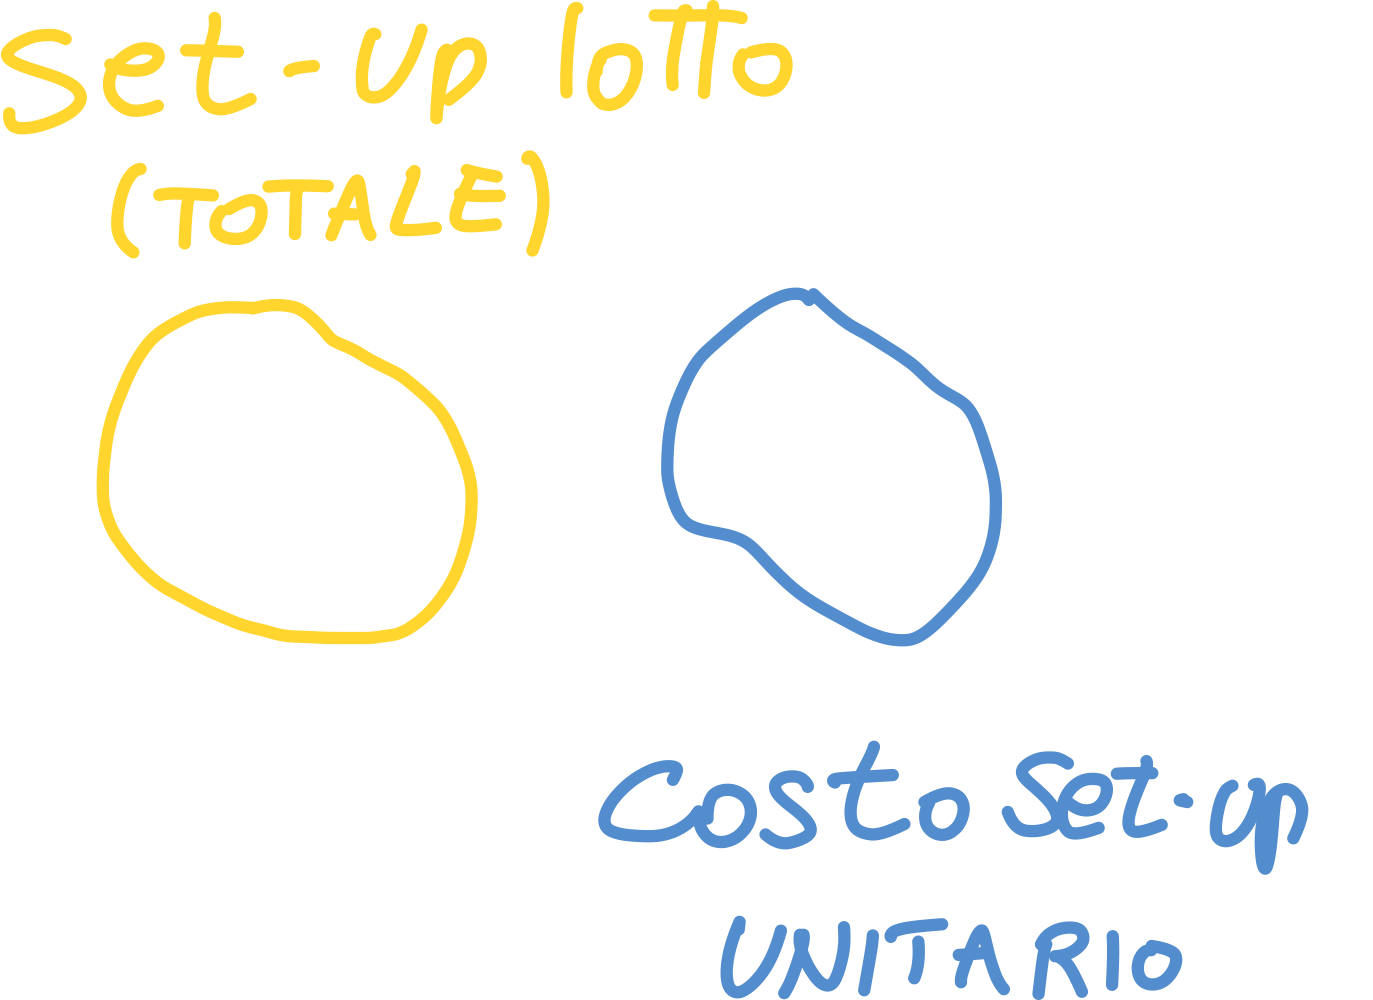 Set-Up lotto
(TOTALE)
Costo Set-up
UNITARIO